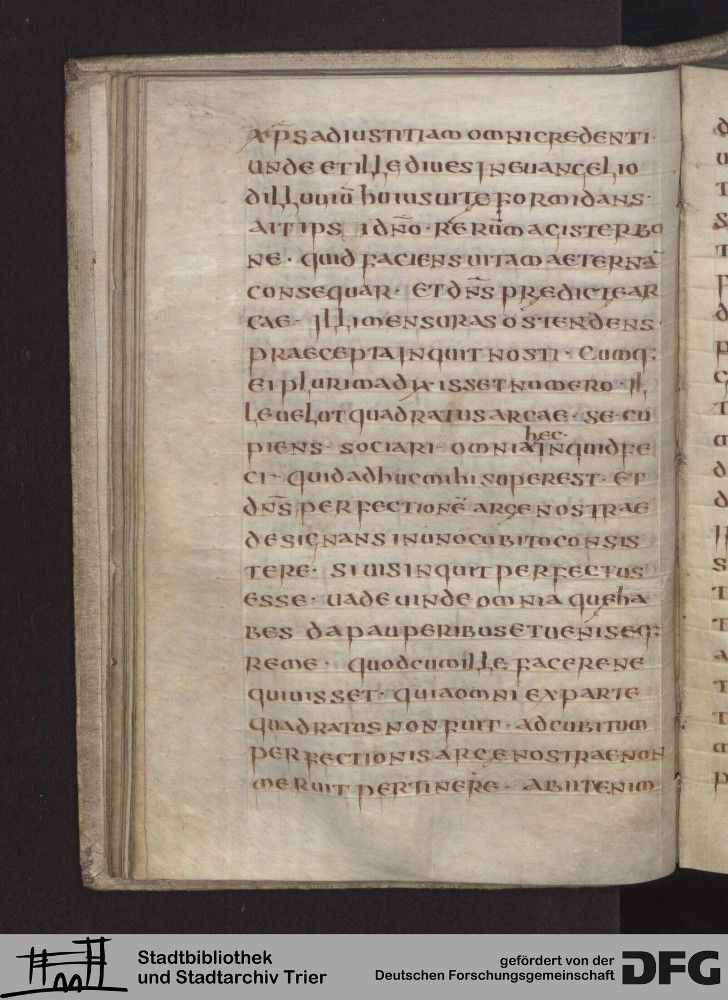 xp̄s ad iustitiam omni credenti·
unde et ille diues in euangelio
dilluuiū huius uite formidans·
ait ipsi dn̄o· rerum magister bo
ne· quid faciens uitam aeternā
consequar· et dn̄s predicte ar
cae· illi mensuras ostendens·
praecepta inquit nosti· Cumq;
ei plurima dixisset numero· il
le uelut quadratus arcae· se cu
piens· sociari· omnia inquid fe
hec·
ci· quid adhuc mihi superest· et
dn̄s perfectionē arce nostrae
designans in uno cubito consis
tere· si uis inquit perfectus
esse· uade uinde omnia que ha
bes da pauperibus et ueni seq;
re me· quod cum ille facere ne
quiuisset· quia omni ex parte
quadratus non fuit· ad cubitum
perfectionis arce nostrae non
meruit pertinere· abiit enim
Stadtbibliothek
und Stadtarchiv Trier
gefördert von der
Deutschen Forschungsgemeinschaft
DFG